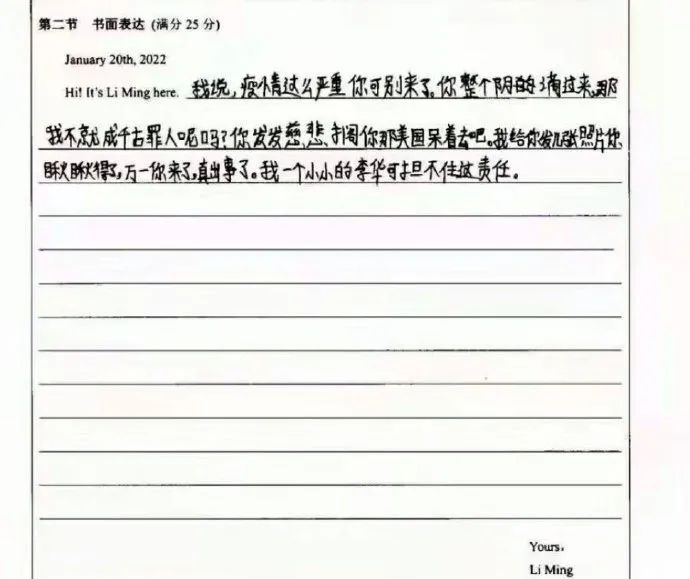 第二节 书面表达 (满分 25 分)
January 20th, 2022
Hi! It's Li Ming here. 我说，疫情过么严重你可别来了。你整个阴的滴过来，那
我不就成千古罪人了吗？你发发慈悲，搁你那美国呆着去吧。我给你发几张照片你
瞅瞅得了，万一你来了，真出事了。我一个小小的李华可担不住这责任。
Yours,
Li Ming